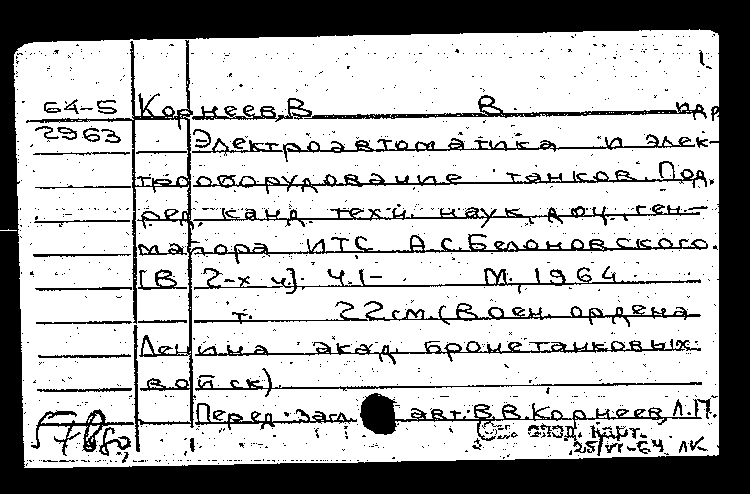 64-5 Корнеев, В В. и др
2963 Электроавтоматика и элек-
трооборудование танков. Под.
ред. канд. техн. наук, доц., ген.-
майора ИТС А.С.Белоновского.
[В 2-х ч]. Ч.1- М., 1964
т. 22см. (Воен. ордена
Ленина акад. бронетанковых
войск)
Перед загл. авт: В.В.Корнеев, Л.П.
См. след. карт.
25/VI-64 ЛК